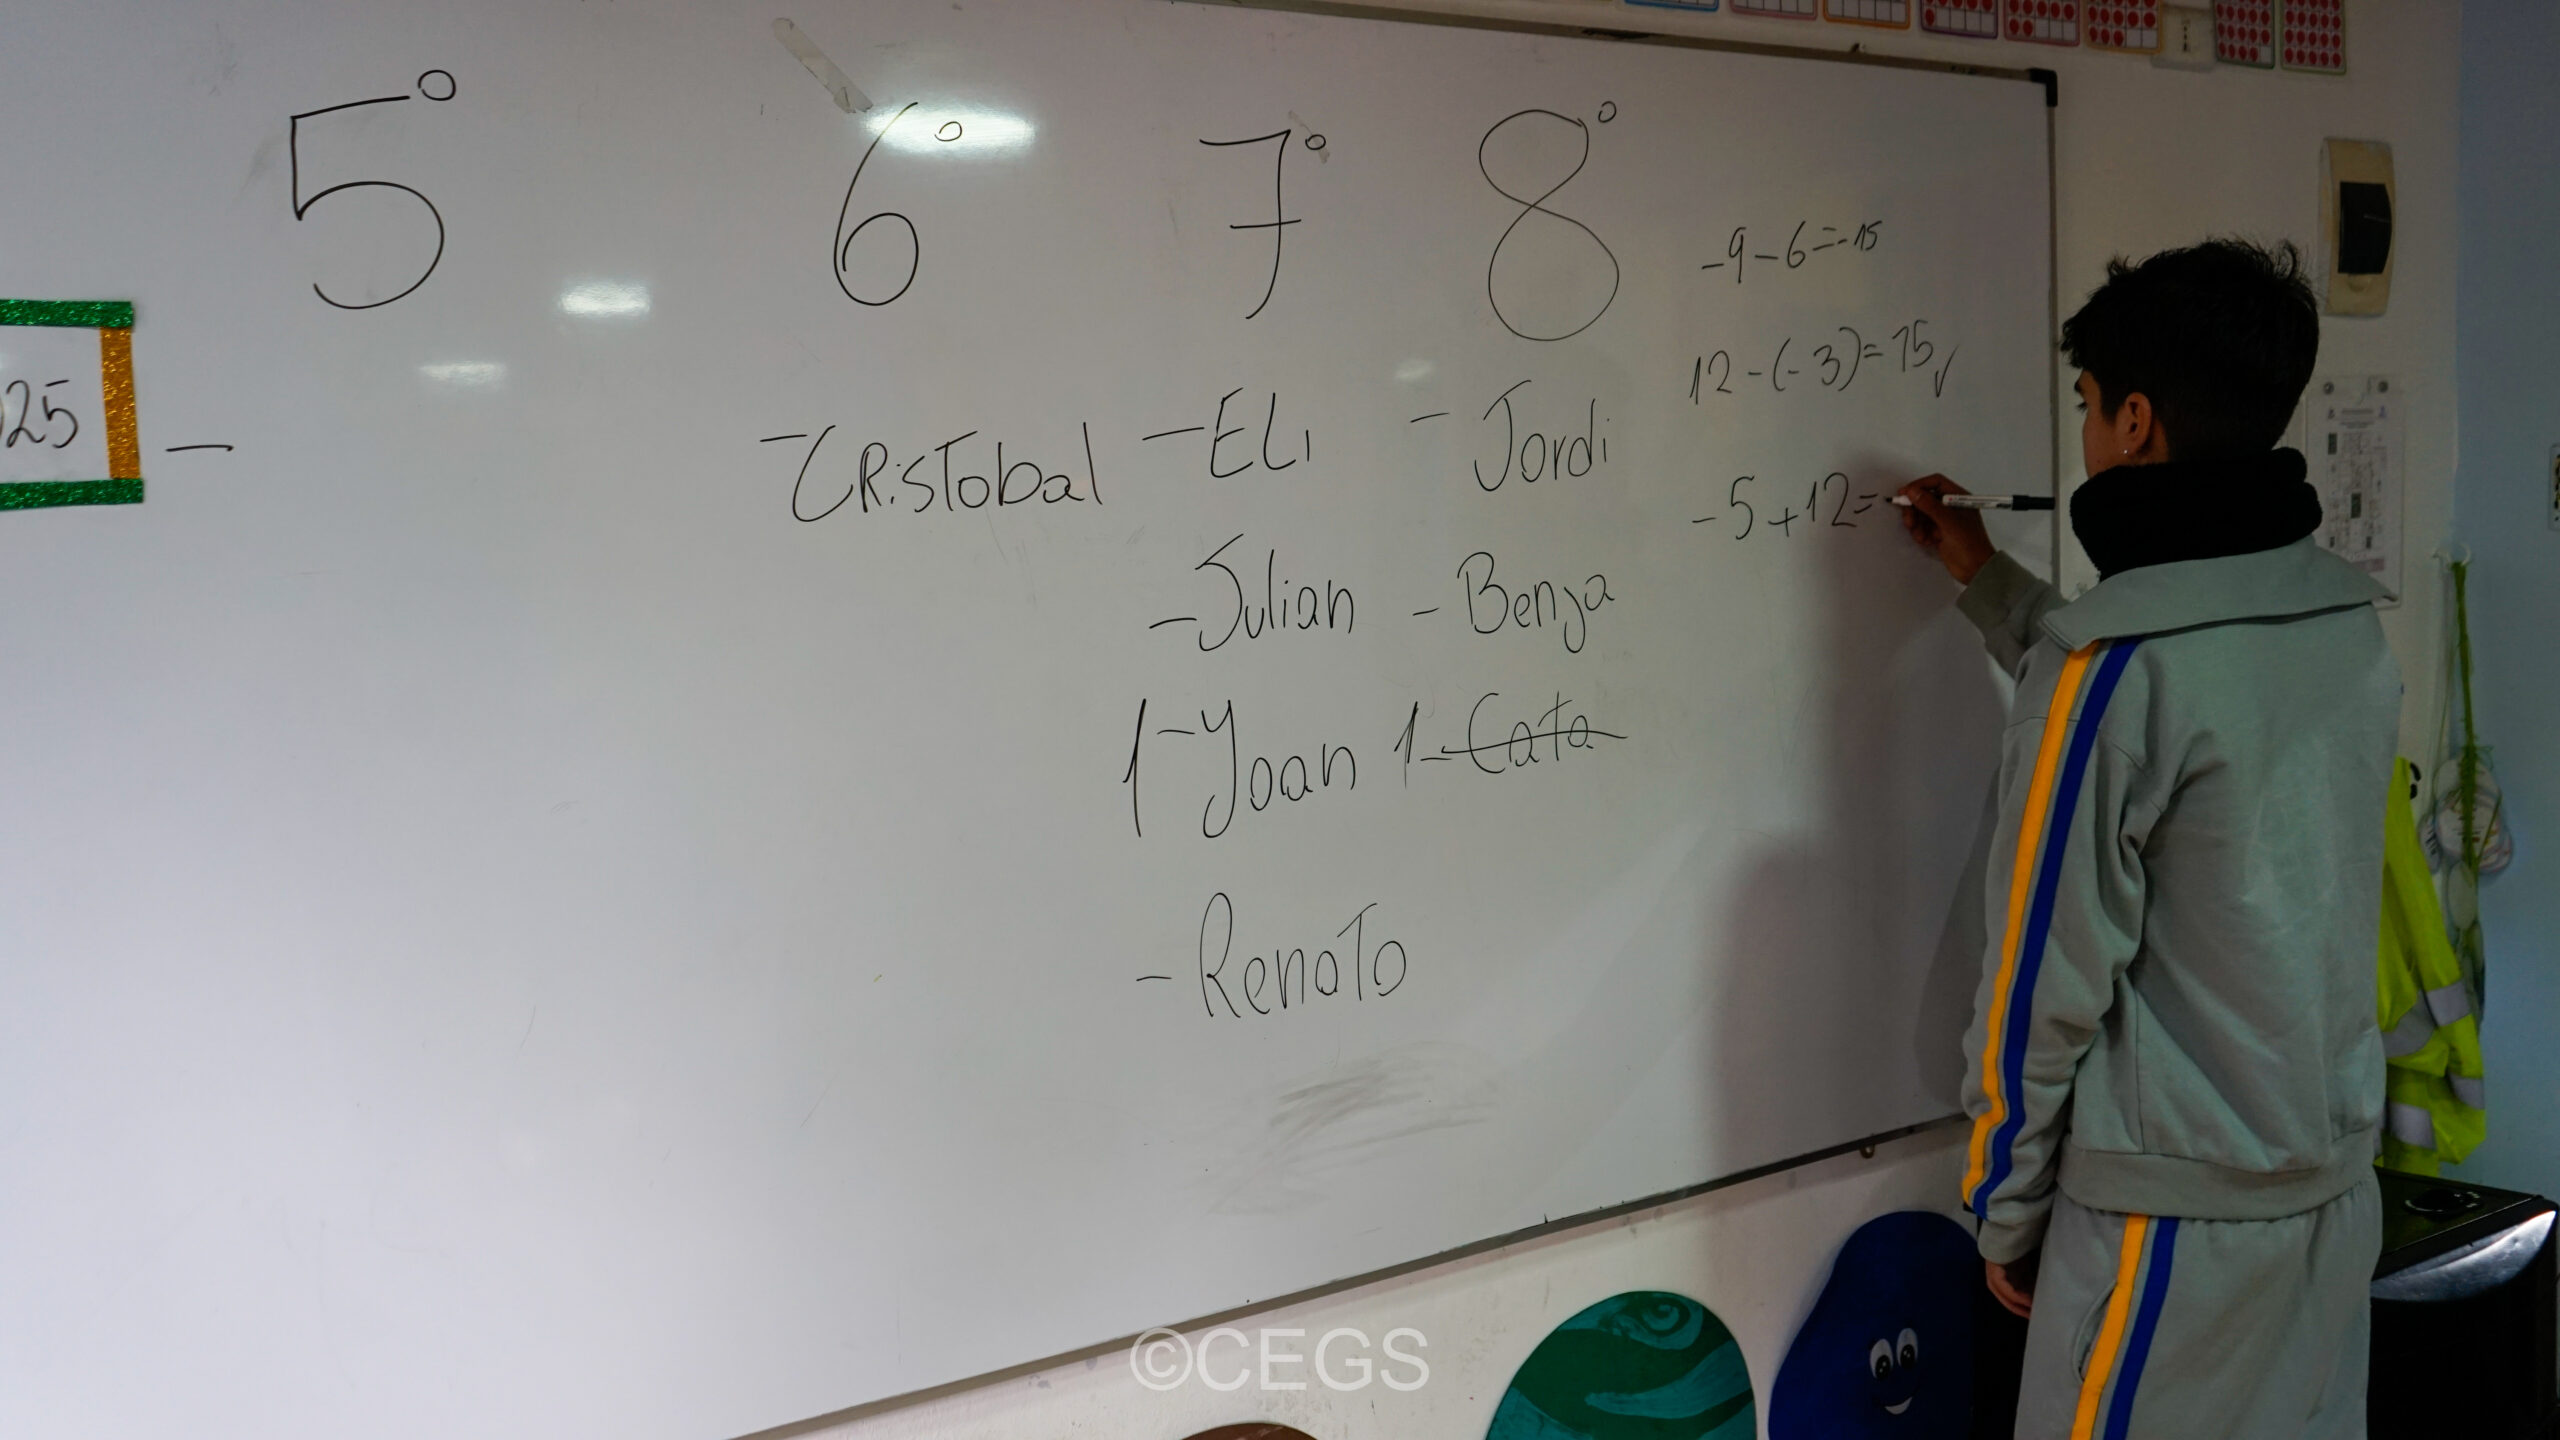 5° 6° 7° 8°
-9-6=-15
12-(-3)=15✓
-5+12=
25 -
-CRisTobal -ELi - Jordi
-Julian - Benja
1-Yoan 1-Cata
-RenaTo
©CEGS